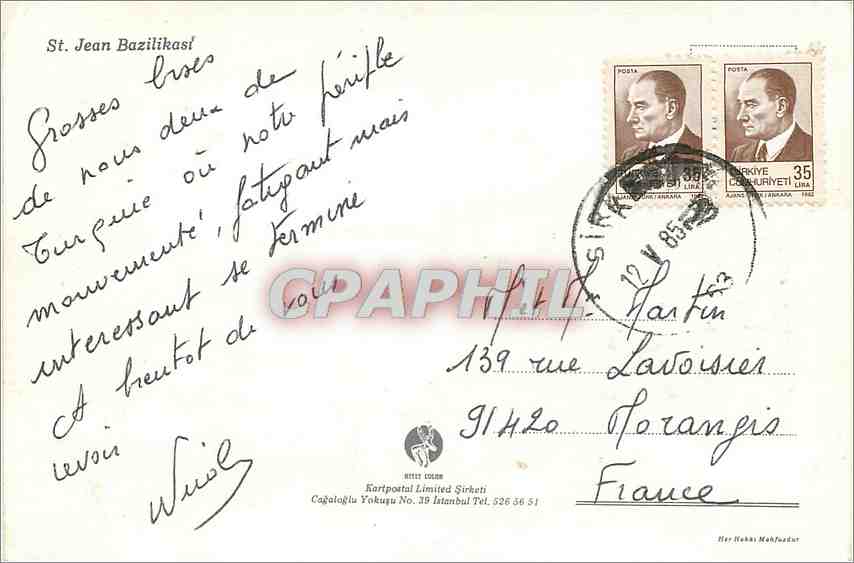 St. Jean Bazilikası
Grosses bises
de nous deux de
Turquie où notre périple
mouvementé, fatigant mais
interessant se termine
A bientot de vous
revoir
POSTA
TÜRKİYE
CUMHURİYETİ
35
LİRA
AJANS-TÜRK / ANKARA 1982
POSTA
TÜRKİYE
CUMHURİYETİ
35
LİRA
AJANS-TÜRK / ANKARA 1982
SİRK
12 V 85
CPAPHIL
M et M. Martin
139 rue Lavoisier
91420 Morangis
France
Kartpostal Limited Şirketi
Cağaloğlu Yokuşu No. 39 İstanbul Tel. 526 56 51
Her Hakkı Mahfuzdur